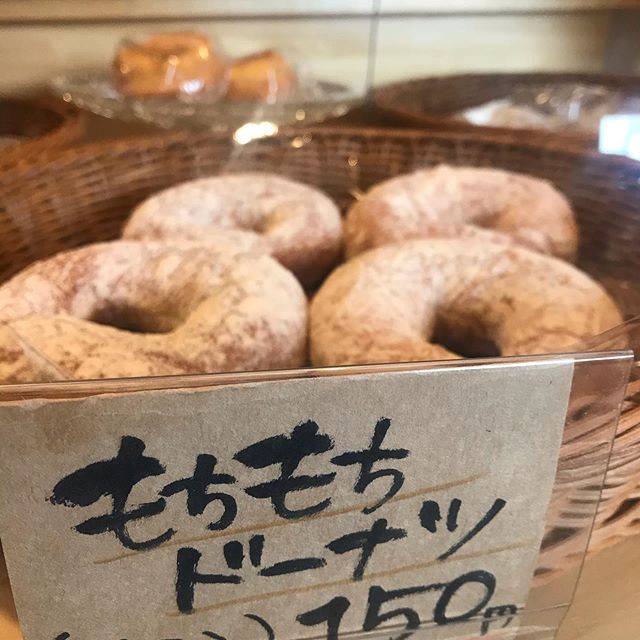 もちもち
ドーナツ
150円